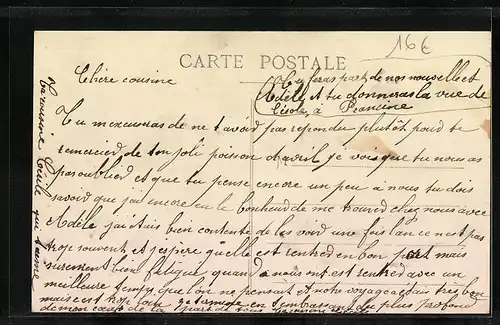 16€
CARTE POSTALE
Chère cousine
Tu feras part de nos nouvelle et
Adèle et tu donneras la vue de
l'école à Francine
Tu m'excuseras de ne t'avoir pas répondu plutôt pour te
remercier de ton joli poisson d'avril je vois que tu nous as
pas oublied et que tu pense encore un peu à nous tu dois
savoir que j'ai encore eu le bonheur de me trouver chez nous avec
Adèle j'aitais bien contente de las voir une fois lan ce n'est pas
trop souvent et j'espère qu'elle est rentred en bon port mais
surement bien fatigué quand à nous ont est rentred avec un
meilleure temps que l'on ne pensait et notre voyage a étais très bien
mais c'est trop loin je termine en t'embrassant le plus profond
de mon cœur de la part de tous
ta cousine Cécile qui t'aime